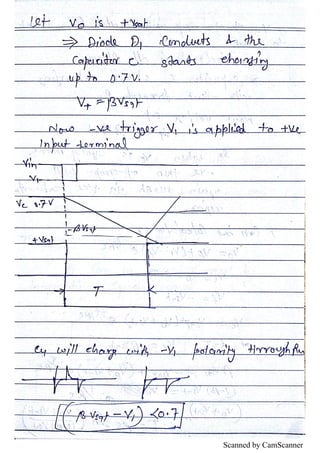 Let Vo is +Vsat
⇒ Diode D1 Conducts & the
Capacitor C starts charging
up to 0.7 V.
V+ = βVsat
Now -ve trigger V1 is applied to +ve
input terminal
Vin
V1
Vc 0.7 V
-βVsat
+Vsat
T
C4 will charg with -V1 polarity through
[(βVsat - V1) < 0.7]
Scanned by CamScanner